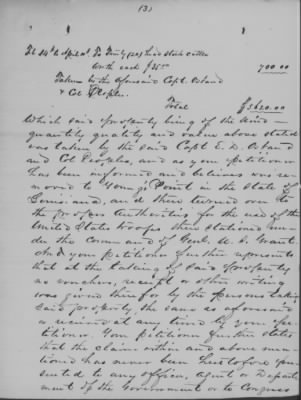 (3)
To Twenty (20) head stock cattle
worth each $35.00 700.00
Taken by the aforesaid Capt. Osband
& Col Peoples
Total $3620.00
Which said property being of the kind
quantity quality and value above stated
was taken by the said Capt E. D. Osband
and Col Peoples, and as your petitioner
has been informed and believes was re-
moved to Young's Point in the State of
Louisiana, and then turned over to
the proper authorities for the use of the
United States troops then stationed un-
der the command of Genl. U. S. Grant
And your petitioner further represents
that at the taking of said property
no voucher, receipt or other writing
was given therefor by the persons taking
said property, the same as aforesaid
or received at any time by your pe-
titioner. Your petitioner further states
that the claim written and above men-
tioned has never been heretofore pre-
sented to any officer, agent or Depart-
ment of the Government or to Congress